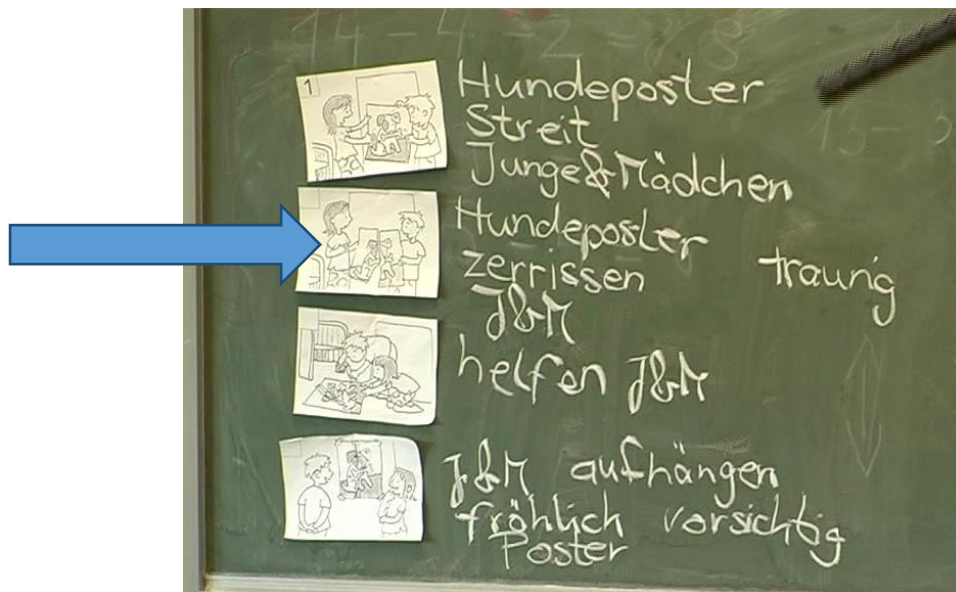 14 - 4 - 2 = 8
1
Hundeposter
Streit
Junge&Mädchen
13 - 3
Hundeposter
zerrissen traurig
J&M
helfen J&M
J&M aufhängen
fröhlich vorsichtig
Poster